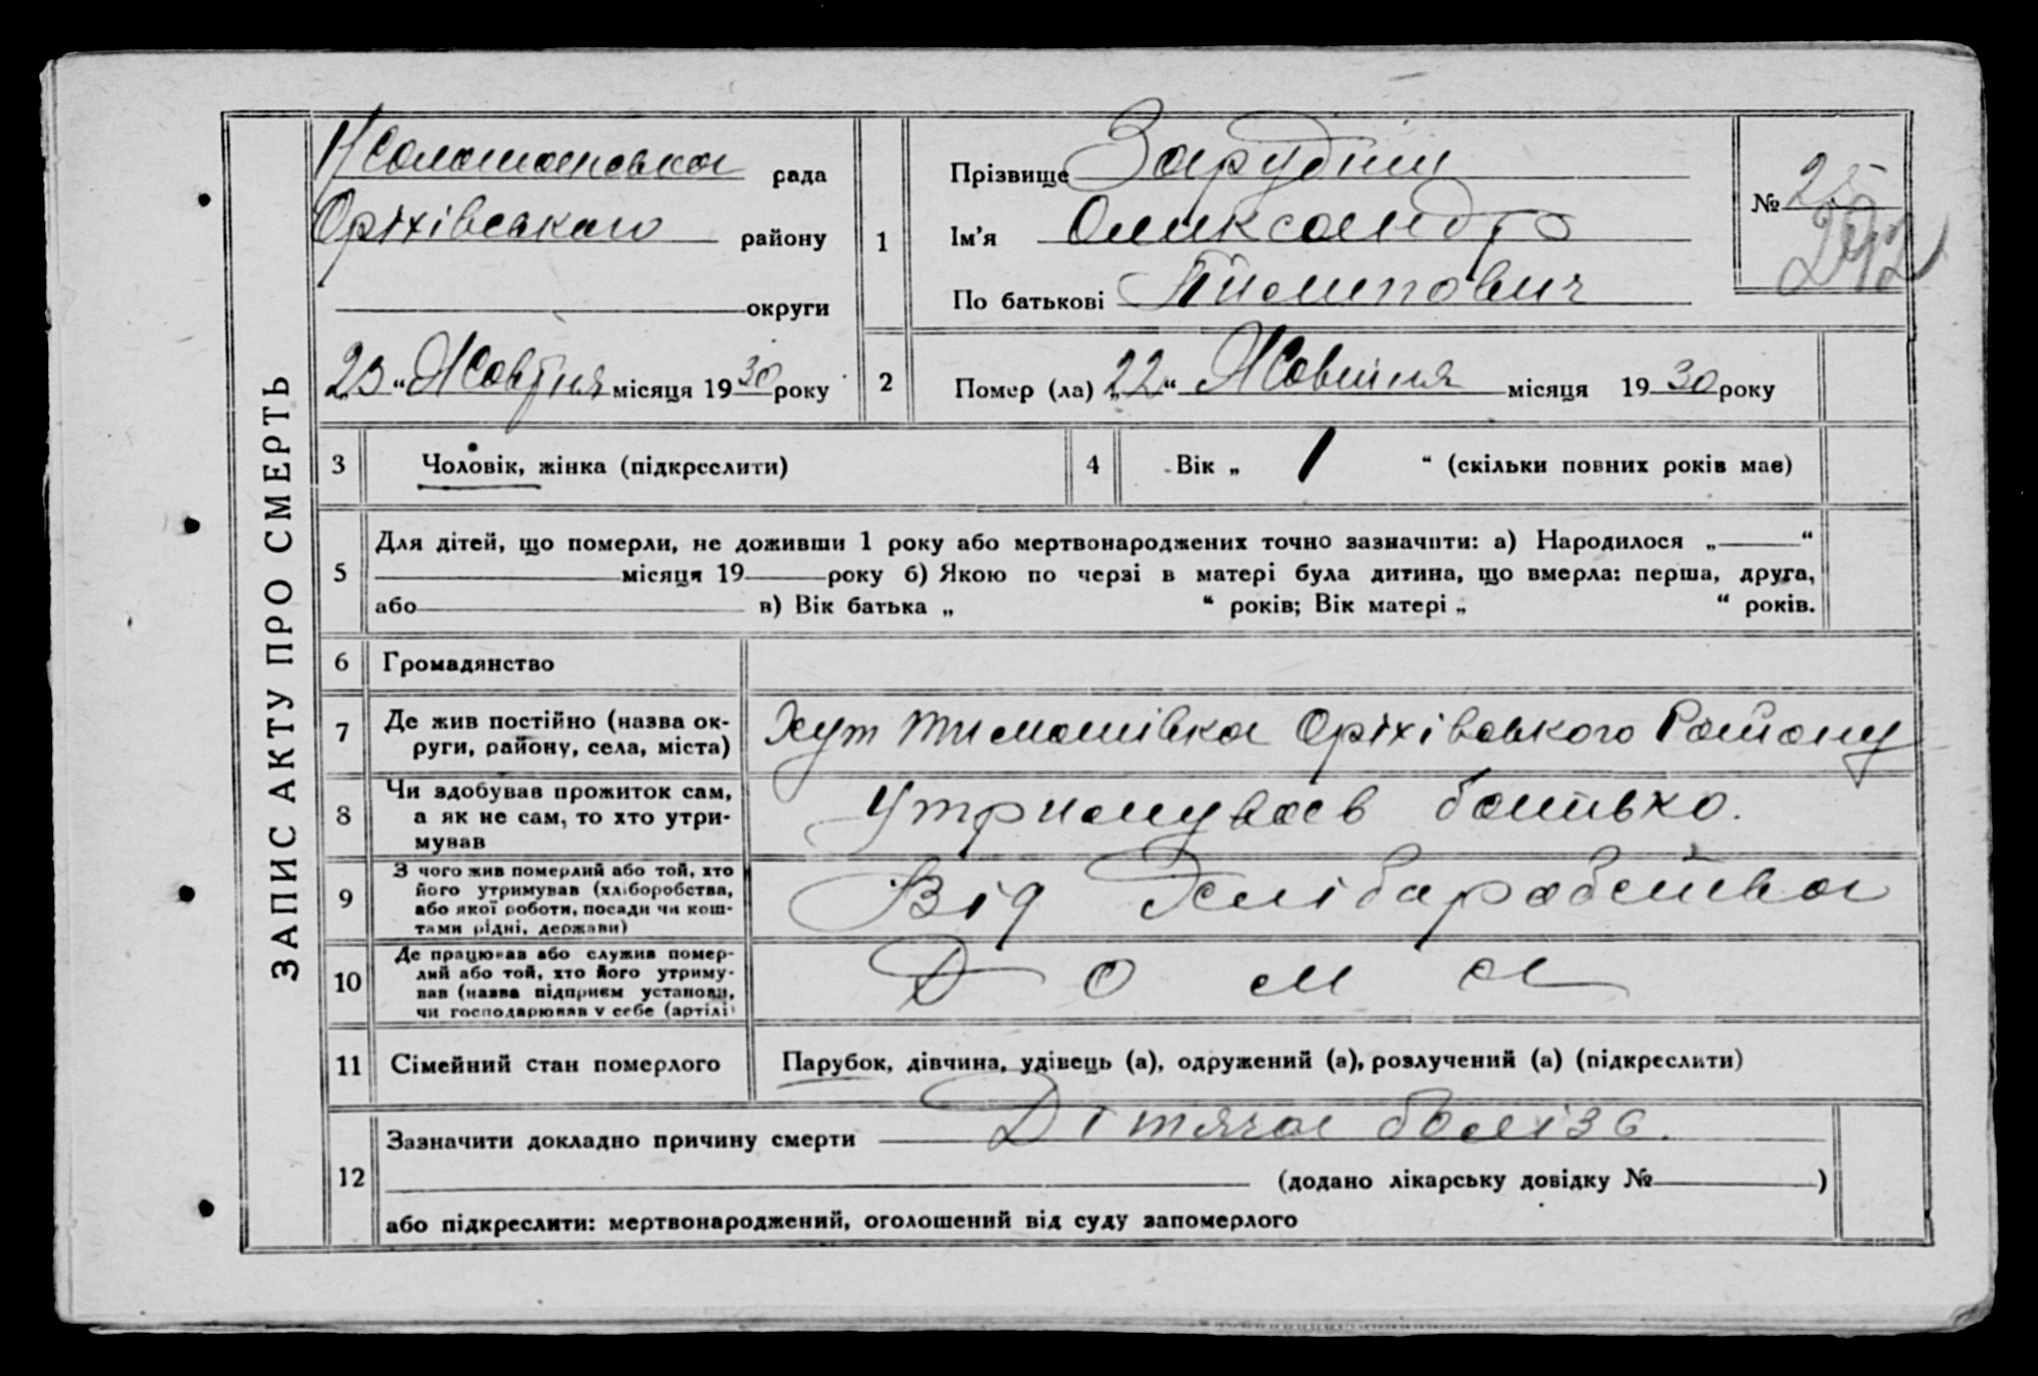 ЗАПИС АКТУ ПРО СМЕРТЬ
рада
Оріхівського району
округи
„23“ Жовтня місяця 1930 року
1
Прізвище Зарудний
Ім'я Олександр
По батькові Пилипович
№ 25
292
2
Помер (ла) „22“ Жовтня місяця 1930 року
3
Чоловік, жінка (підкреслити)
4
Вік „ 1 “ (скільки повних років має)
5
Для дітей, що померли, не доживши 1 року або мертвонароджених точно зазначити: а) Народилося „ “
місяця 19 року б) Якою по черзі в матері була дитина, що вмерла: перша, друга,
або в) Вік батька „ “ років; Вік матері „ “ років.
6
Громадянство
7
Де жив постійно (назва ок-
руги, району, села, міста)
Хут Тимошівка Оріхівського Району
8
Чи здобував прожиток сам,
а як не сам, то хто утри-
мував
Утримував батько.
9
З чого жив померлий або той, хто
його утримував (хліборобства,
або якої роботи, посади чи кош-
тами рідні, держави)
Від Хліборобства
10
Де працював або служив помер-
лий або той, хто його утриму-
вав (назва підприєм установи,
чи господарював у себе (артілі
Дома
11
Сімейний стан померлого
Парубок, дівчина, удівець (а), одружений (а), розлучений (а) (підкреслити)
12
Зазначити докладно причину смерти Дітяча болізь.
(додано лікарську довідку № )
або підкреслити: мертвонароджений, оголошений від суду запомерлого